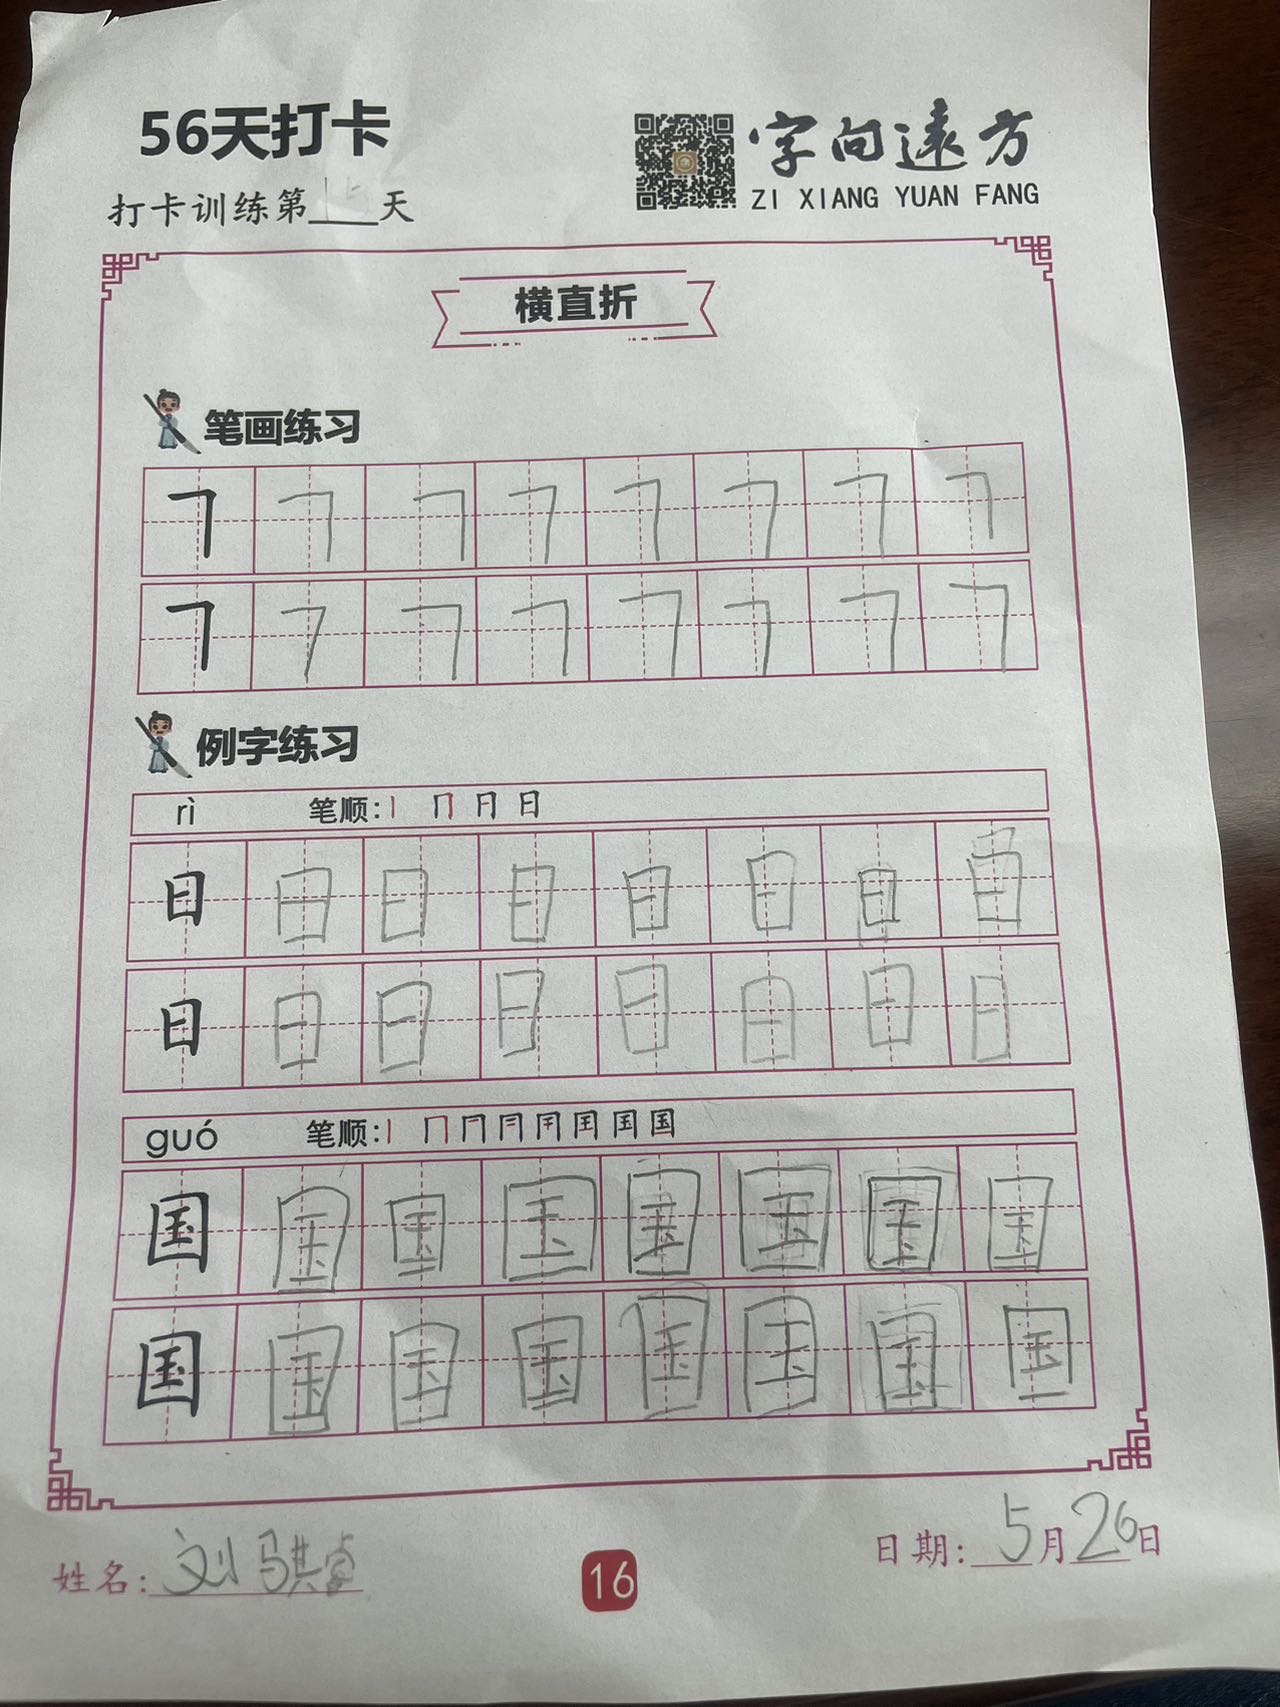 56天打卡
字向远方
ZI XIANG YUAN FANG
打卡训练第15天
横直折
笔画练习
𠃍 𠃍 𠃍 𠃍 𠃍 𠃍 𠃍 𠃍
𠃍 𠃍 𠃍 𠃍 𠃍 𠃍 𠃍 𠃍
例字练习
rì 笔顺: 丨 冂 日 日
日 日 日 日 日 日 日 日
日 日 日 日 日 日 日 日
guó 笔顺: 丨 冂 国
国 国 国 国 国 国 国 国
国 国 国 国 国 国 国 国
姓名: 刘骐睿
16
日期: 5月26日